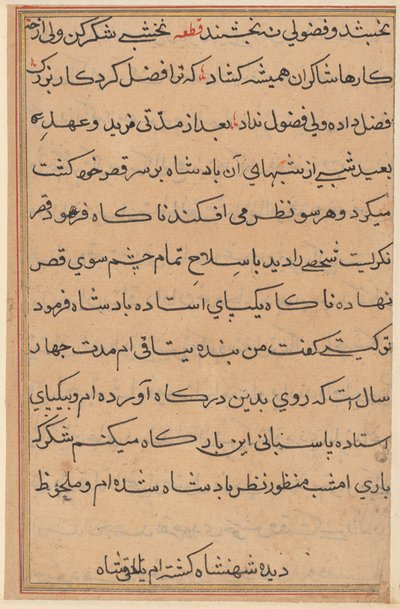 نبخشد و فضولی نه بخشند قطعه نخشبی شکر کن ولی از حق
کارها شاکران همیشه کشاد که ترا فضل کرد کار بزرک
فضل داده ولی فضول نداد بعد از مدتی فرید و عهدی
بعید شبی از شبهای آن بادشاه بر سر قصر خود کشت
میکرد و هر سو نظر می افکند ناکاه فرمود قصر
نکریست شخصی را دید با سلاح تمام چشم سوی قصر
نهاده ناکاه بیکپای استاده بادشاه فرمود
تو کیستی کفت من بنده یتاقی ام مدت چهار
سال است که روی بدین درکاه آورده ام و بیکپای
استاده پاسبانی این بارکاه میکنم شکر که
باری امشب منظور نظر بادشاه شده ام و ملحوظ
دیده شهنشاه کشته ام